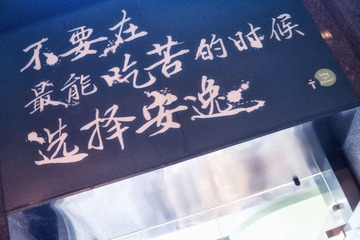 不要在
最能吃苦的时候
选择安逸